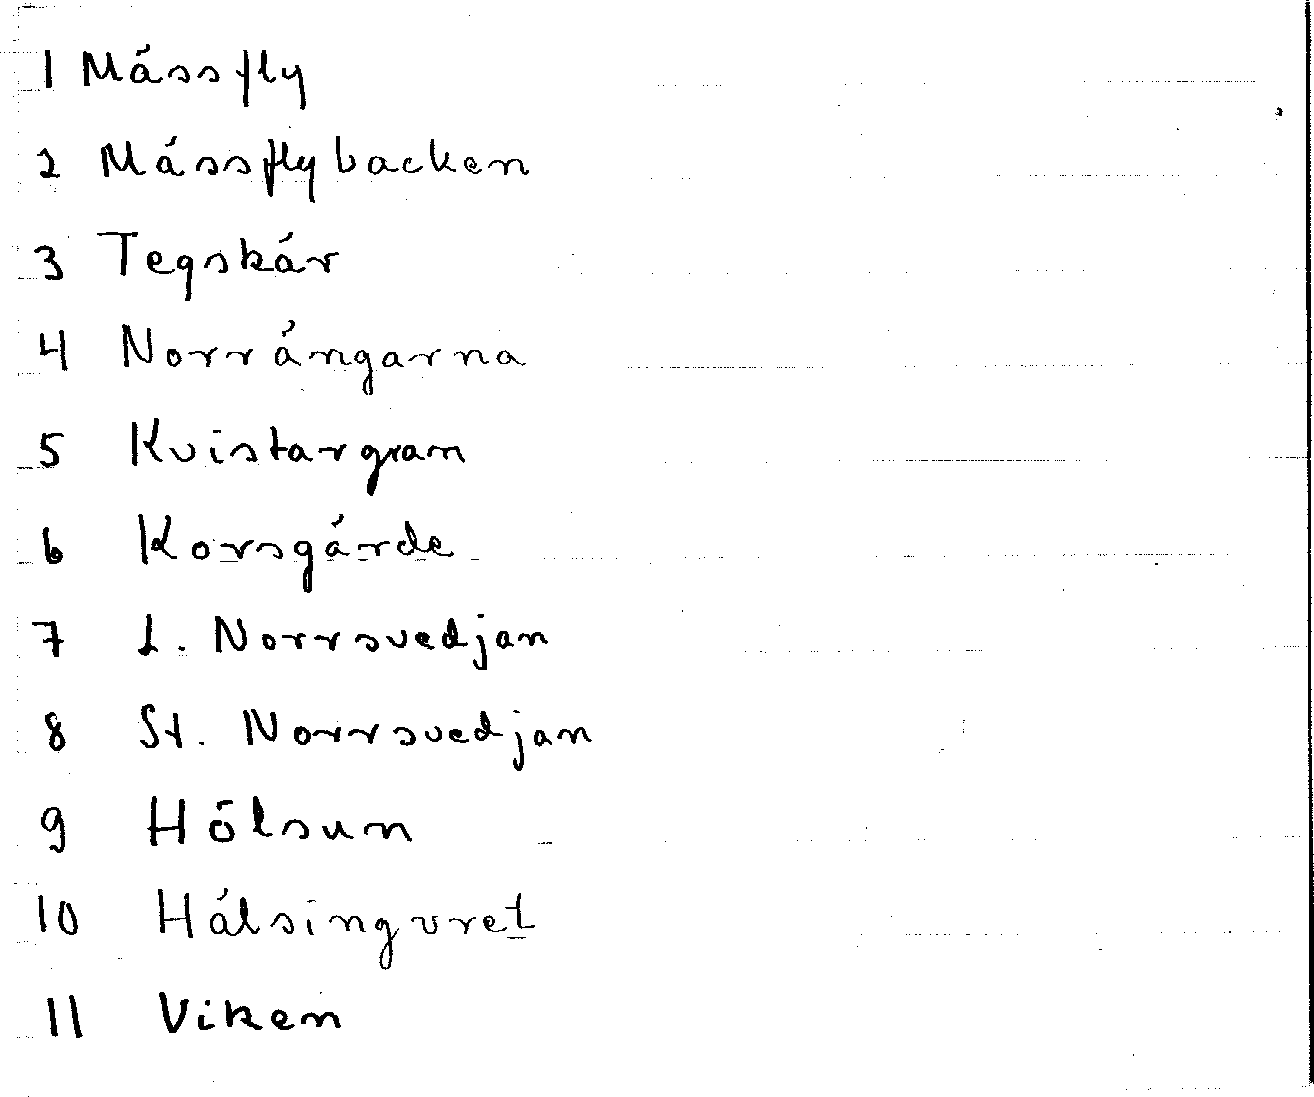 1 Mássfly
2 Mássflybacken
3 Tegskár
4 Norrángarna
5 Kvistargram
6 Korsgárde
7 L. Norrsvedjan
8 St. Norrsvedjan
9 Hólsun
10 Hálsingvret
11 Viken